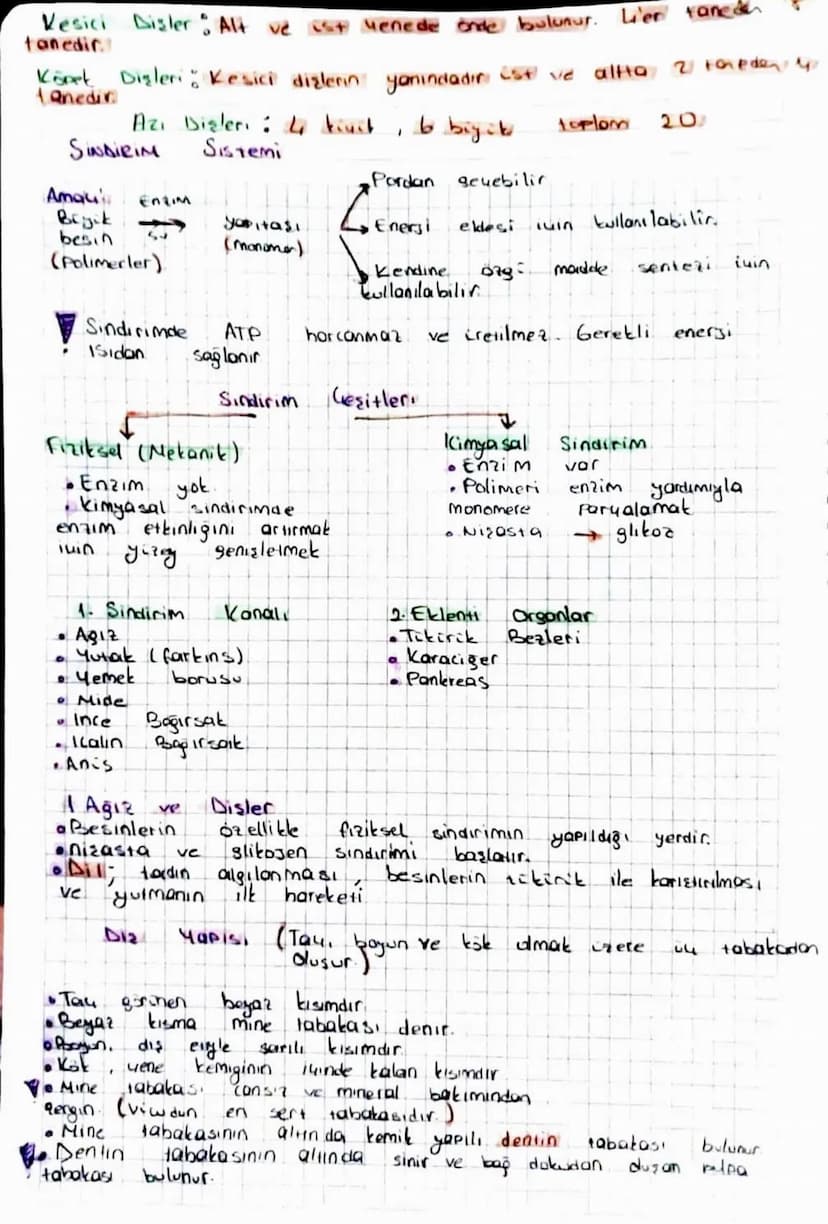 Kesici Dişler : Alt ve üst çenede önde bulunur. 4'er taneden 8
tanedir.
Köpek Dişleri : Kesici dişlerin yanındadır üst ve altta 2 taneden 4
tanedir.
Azı Dişleri : 4 küçük, 6 büyük toplam 20
SİNDİRİM SİSTEMİ
Pordan geçebilir
Amaç: Enzim
Büyük yapıtaşı
besin su (monomer)
(Polimerler)
Enerji eldesi için kullanılabilir.
Kendine özgü madde sentezi için
kullanılabilir
Sindirimde ATP harcanmaz ve üretilmez. Gerekli enerji
ısıdan sağlanır
Sindirim Çeşitleri
Fiziksel (Mekanik)
• Enzim yok
• Kimyasal sindirimde
enzim etkinliğini artırmak
için yüzey genişletmek
Kimyasal Sindirim
• Enzim var
• Polimeri enzim yardımıyla
monomere parçalamak
• Nişasta → glikoz
1. Sindirim Kanalı
• Ağız
• Yutak (farkins)
• Yemek borusu
• Mide
• İnce Bağırsak
• Kalın Bağırsak
• Anüs
2. Eklenti Organlar
• Tükürük Bezleri
• Karaciğer
• Pankreas
1 Ağız ve Dişler
• Besinlerin özellikle fiziksel sindirimin yapıldığı yerdir.
• nişasta ve glikojen sindirimi başlatır.
• Dil; tadın algılanması, besinlerin tükürük ile karıştırılması
ve yutmanın ilk hareketi
Diş Yapısı (Taç, boyun ve kök olmak üzere üç tabakadan
oluşur.)
• Taç görünen beyaz kısımdır
• Beyaz kısma mine tabakası denir.
• Boyun, diş etiyle sarılı kısımdır
• Kök, çene kemiğinin içinde kalan kısımdır
• Mine tabakası cansız ve mineral bakımından
zengin. (vücudun en sert tabakasıdır.)
• Mine tabakasının altında kemik yapılı dentin tabakası bulunur
• Dentin tabakasının altında sinir ve bağ dokudan oluşan pulpa
tabakası bulunur.